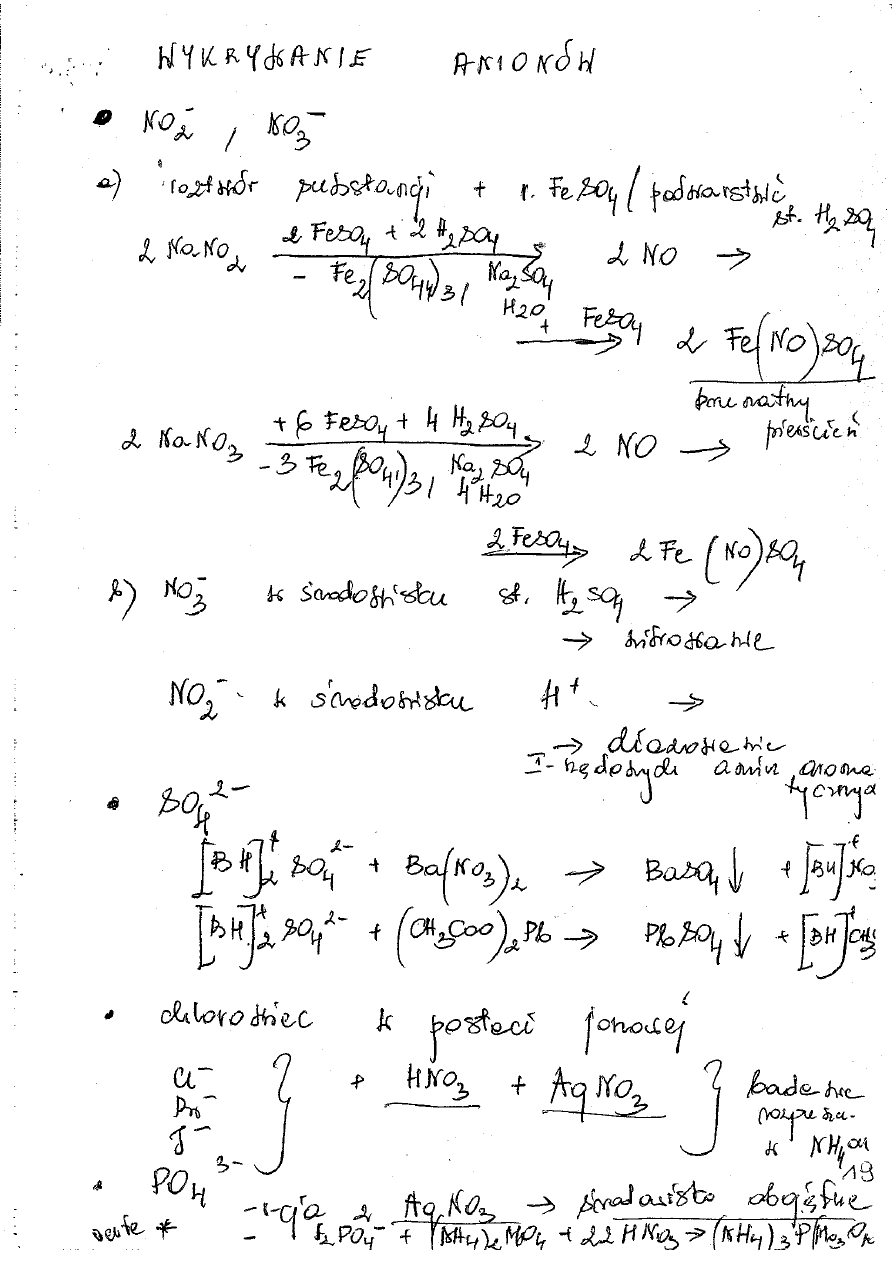 WYKRYWANIE ANIONÓW
• NO₂⁻ , NO₃⁻
a) roztwór substancji + r. FeSO₄ / podwarstwić
st. H₂SO₄
2 NaNO₂ 2 FeSO₄ + 2 H₂SO₄ 2 NO →
- Fe₂(SO₄)₃, Na₂SO₄
H₂O
+ FeSO₄ → 2 Fe(NO)SO₄
brunatny
pierścień
2 NaNO₃ + 6 FeSO₄ + 4 H₂SO₄ → 2 NO →
- 3 Fe₂(SO₄)₃, Na₂SO₄
4 H₂O
2 FeSO₄ → 2 Fe(NO)SO₄
b) NO₃⁻ w środowisku st. H₂SO₄ →
→ nitrowanie
NO₂⁻ w środowisku H⁺ →
→ diazowanie
I-rzędowych amin aroma
tycznych
• SO₄²⁻
[BH]₂⁺ SO₄²⁻ + Ba(NO₃)₂ → BaSO₄↓ + [BH]⁺NO₃
[BH]₂⁺ SO₄²⁻ + (CH₃COO)₂Pb → PbSO₄↓ + [BH]⁺CH₃
• chlorowiec w postaci jonowej
Cl⁻
Br⁻ } + HNO₃ + AgNO₃ } badanie
J⁻ rozpusz.
w NH₄OH
• PO₄³⁻ 19
AgNO₃ → środowisko obojętne
* PO₄⁻ + (NH₄)₂MoO₄ + 22 HNO₃ → (NH₄)₃P(Mo₃O